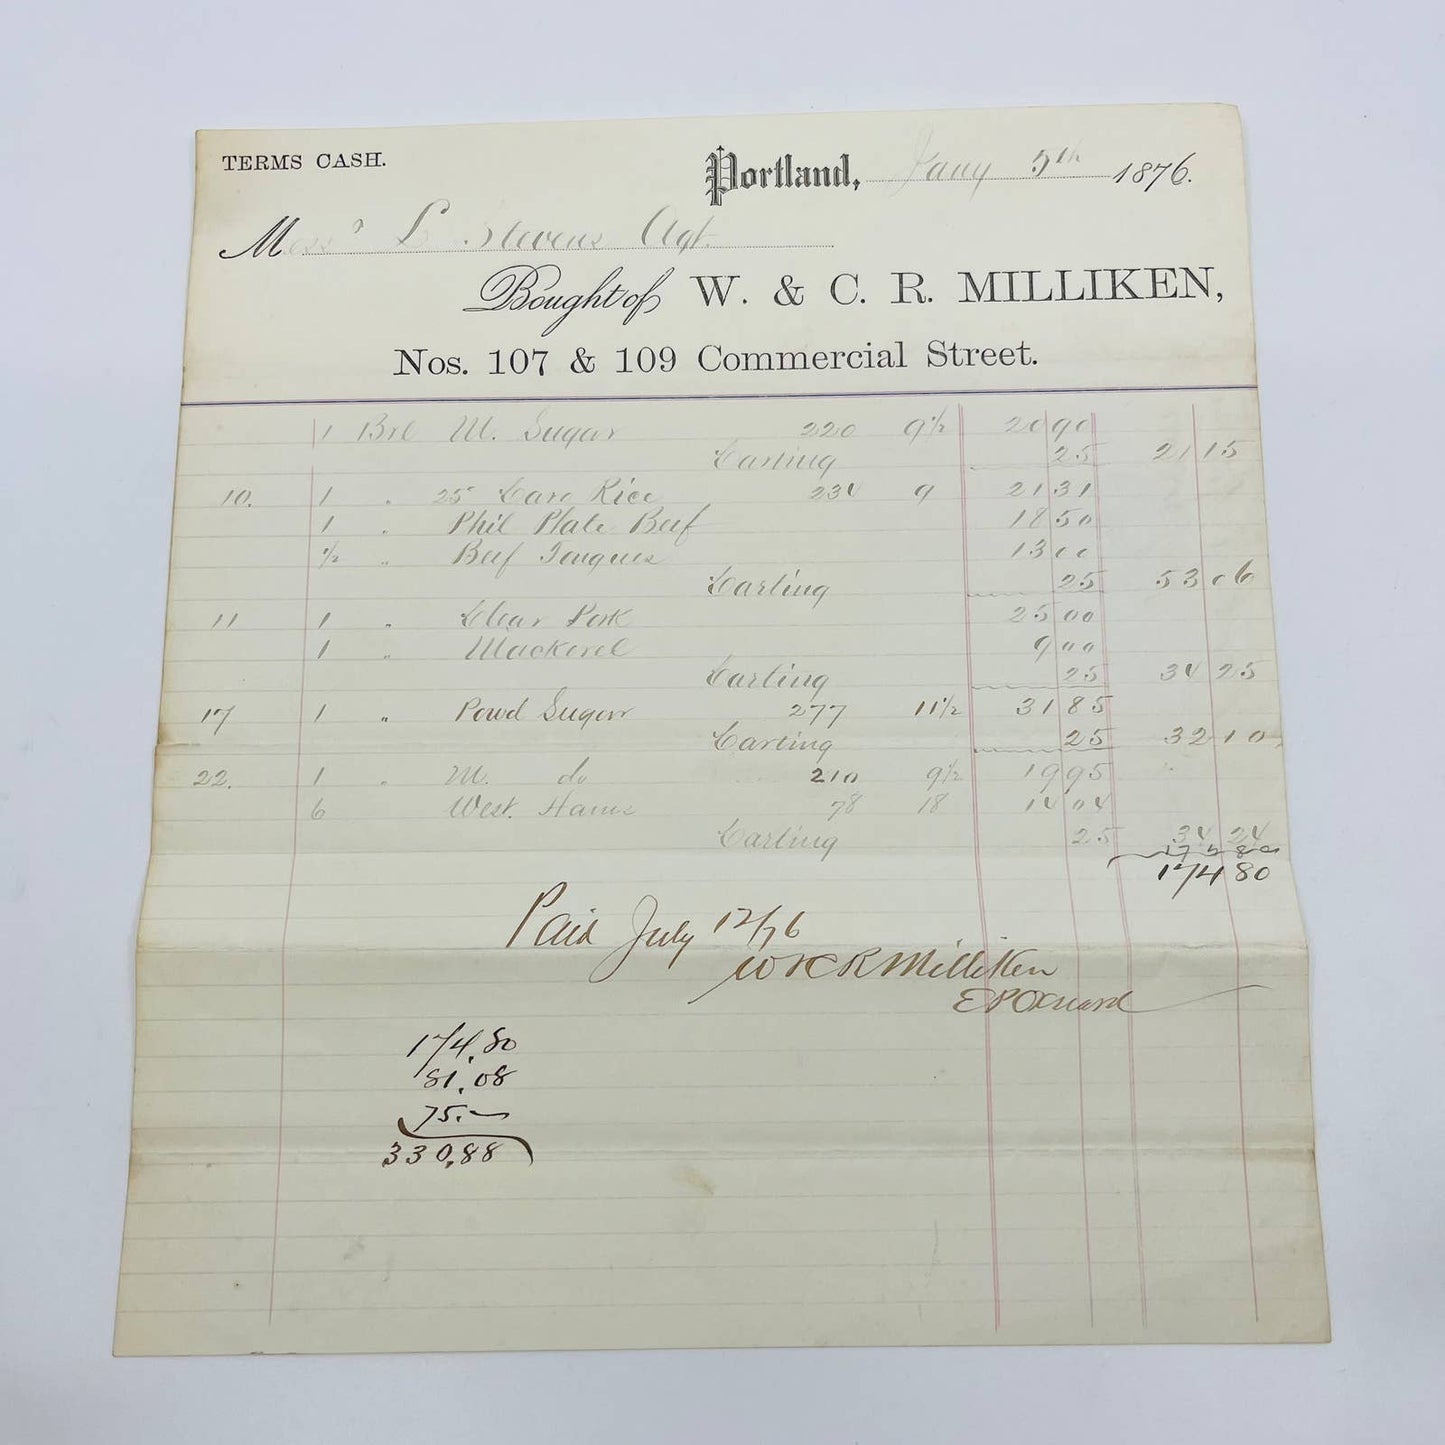 TERMS CASH.
Portland, Jany 5th 1876.
Mess L Stevens Agt.
Bought of W. & C. R. MILLIKEN,
Nos. 107 & 109 Commercial Street.
1 Brl M. Sugar 220 9½ 20 90
Carting 25 21 15
10. 1 " 25 Caro Rice 234 9 21 31
1 " Phil Plate Beef 18 50
½ " Beef Tongues 13 00
Carting 25 53 06
11 1 " Clear Pork 25 00
1 " Mackerel 9 00
Carting 25 34 25
17 1 " Powd Sugar 277 11½ 31 85
Carting 25 32 10
22. 1 " M. do 210 9½ 19 95
6 West. Hams 78 18 14 04
Carting 25 34 24
174 80
Paid July 12/76
W & C R Milliken
E P Oxnard
174.80
81.08
75.—
330.88